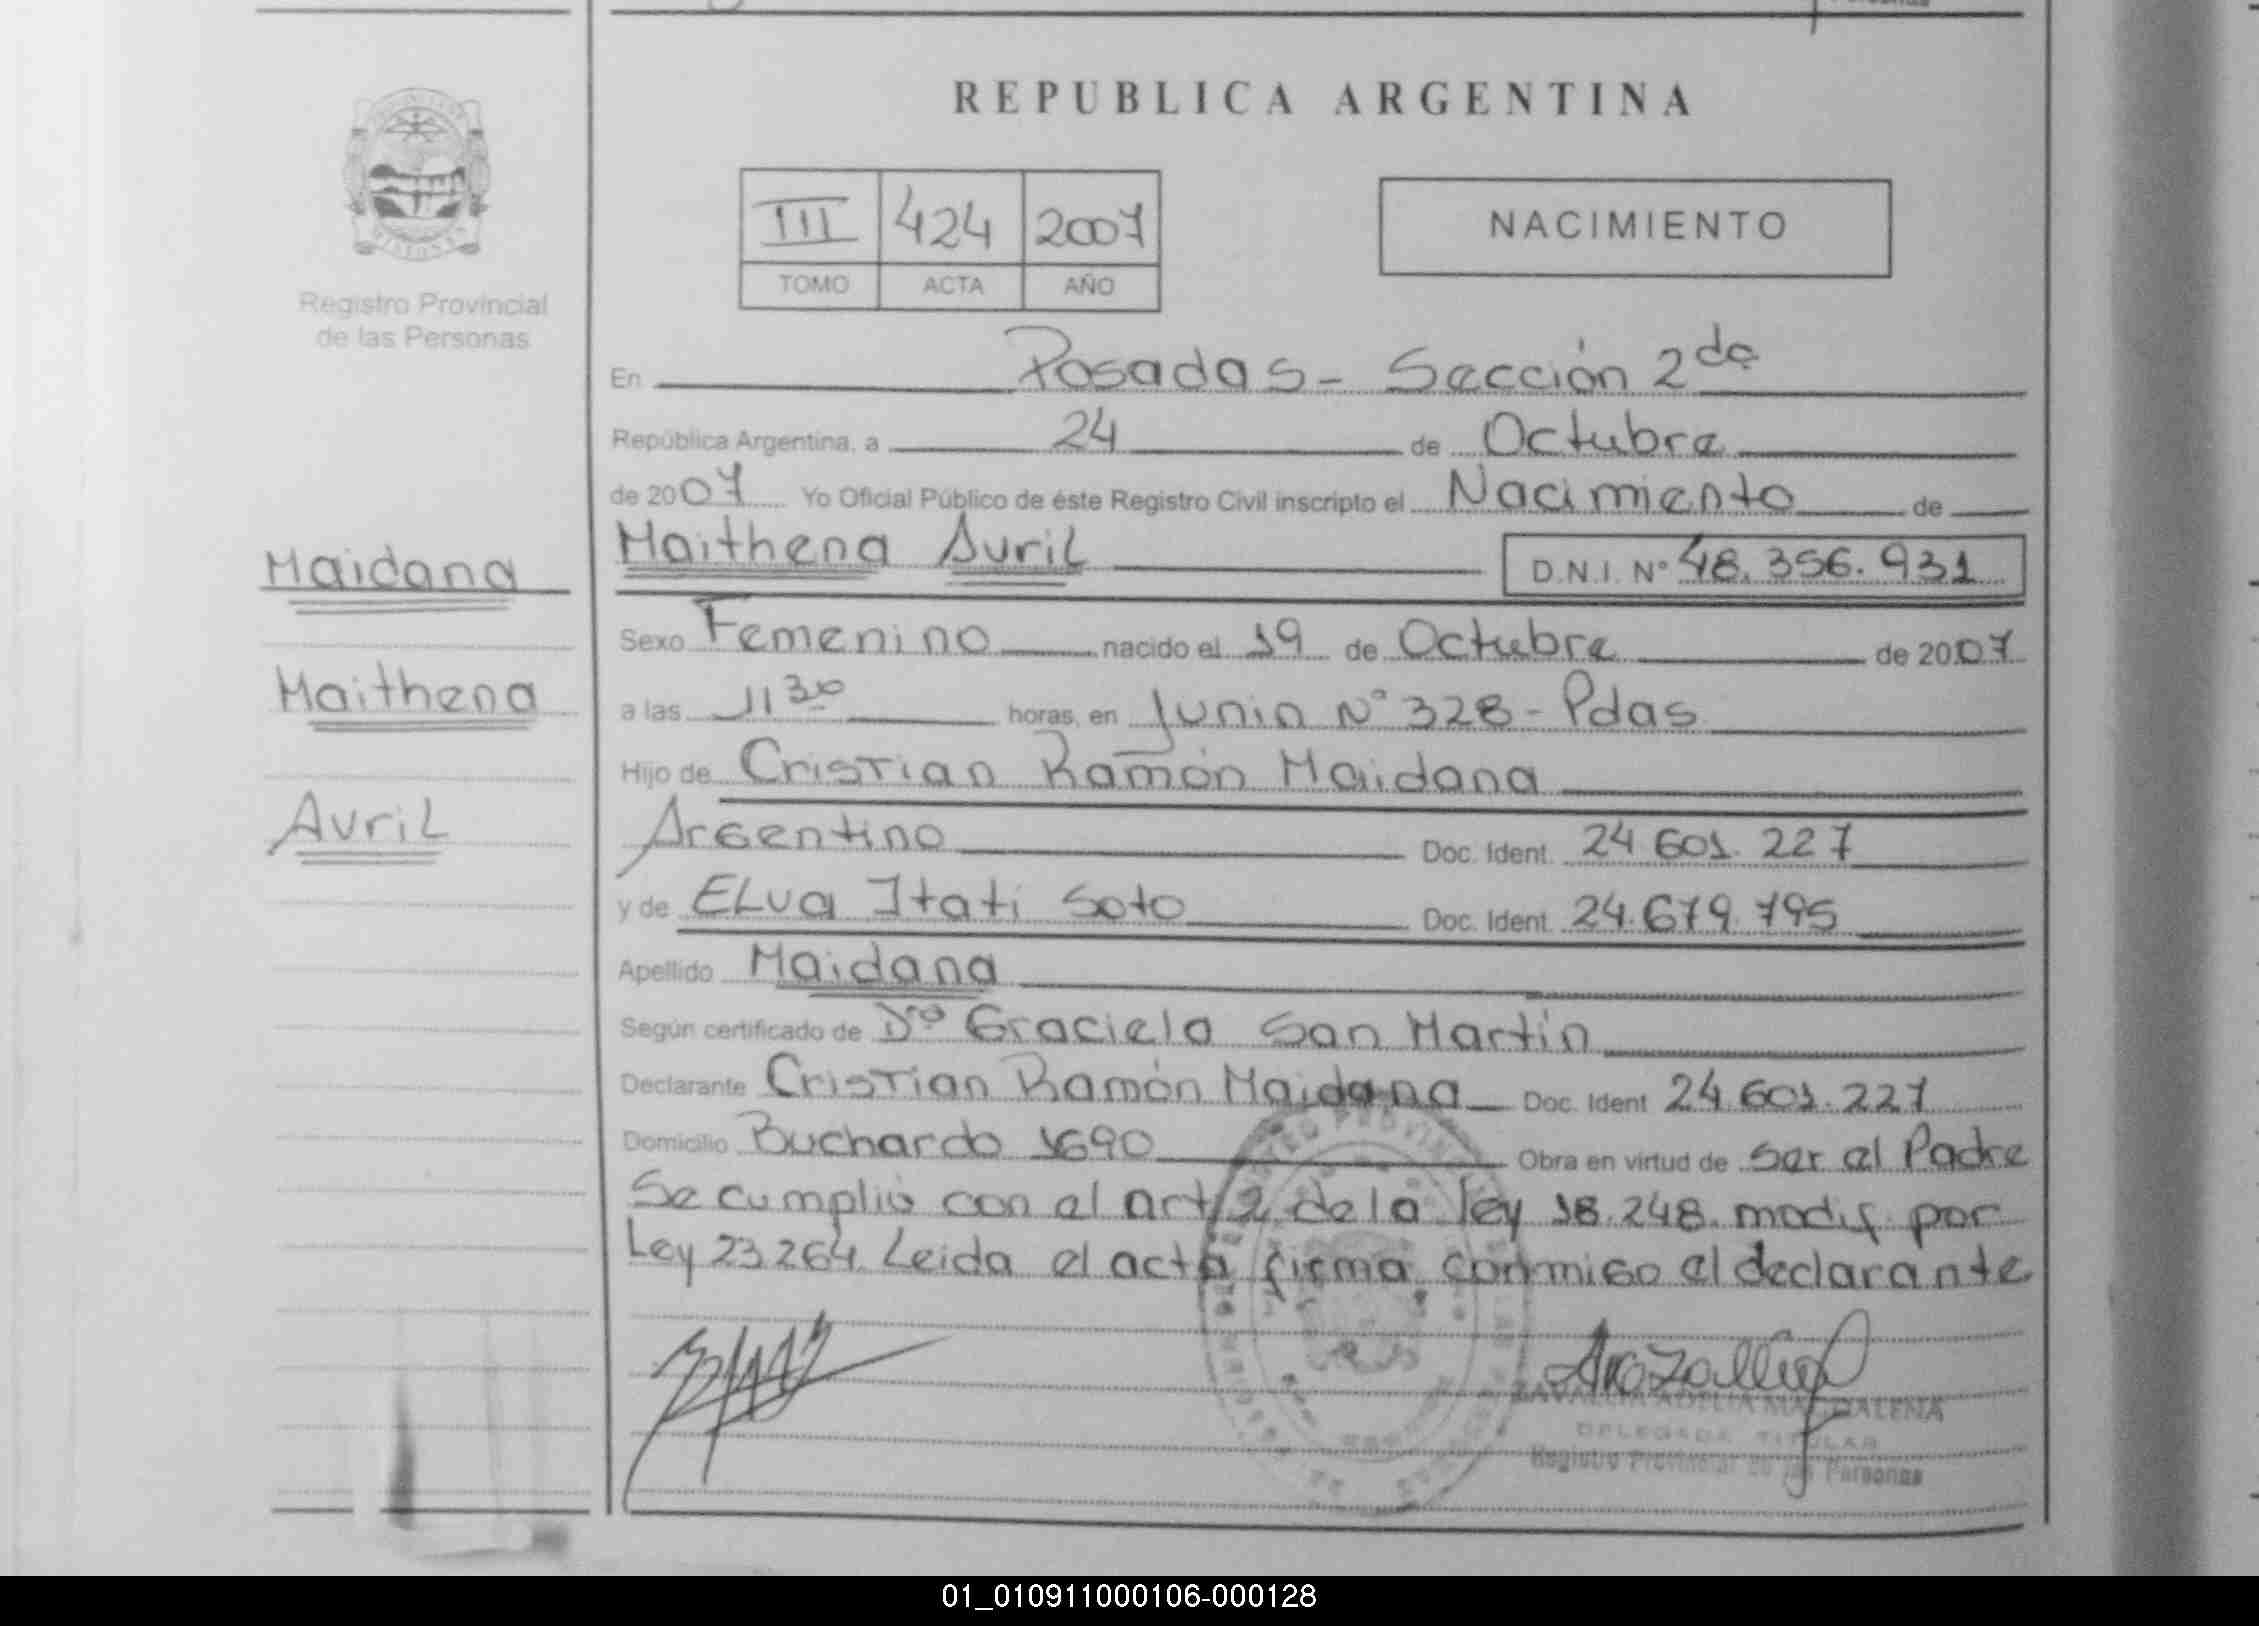 REPUBLICA ARGENTINA
III 424 2007
TOMO ACTA AÑO
NACIMIENTO
Registro Provincial
de las Personas
Maidana
Maithena
Avril
En Posadas - Sección 2da
República Argentina, a 24 de Octubre
de 2007 Yo Oficial Público de éste Registro Civil inscripto el Nacimiento de
Maithena Avril D.N.I. Nº 48.356.931
Sexo Femenino nacido el 19 de Octubre de 2007
a las 11 30 horas, en Junin Nº 328 - Pdas
Hijo de Cristian Ramón Maidana
Argentino Doc. Ident. 24 601. 227
y de Elva Itati Soto Doc. Ident. 24.679.795
Apellido Maidana
Según certificado de Dra Graciela San Martín
Declarante Cristian Ramón Maidana Doc. Ident 24.601.227
Domicilio Buchardo 1690 Obra en virtud de ser el Padre
Se cumplió con el art 2 de la ley 18.248. modif. por
Ley 23.264. Leida el acta firma conmigo el declarante
ZAVALLIA ADELIA MAGDALENA
DELEGADA TITULAR
Registro Provincial de las Personas
01_010911000106-000128